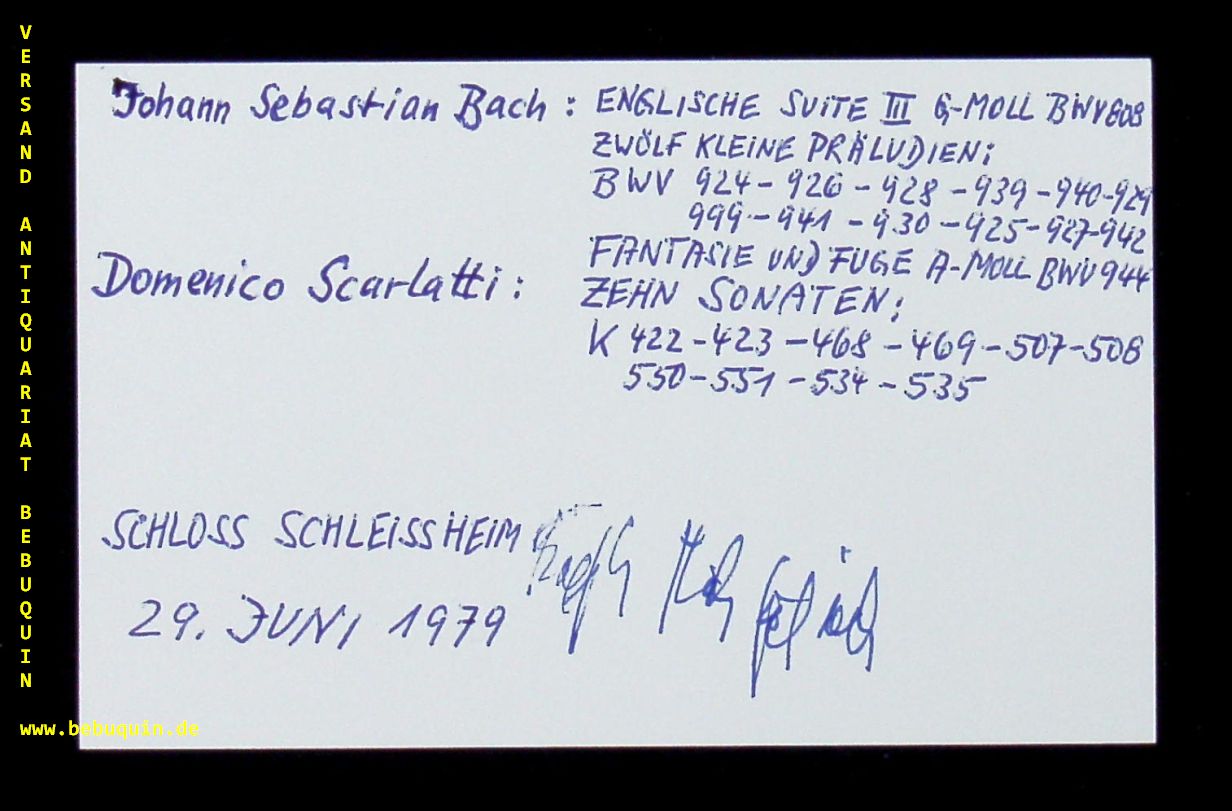 VERSAND ANTIQUARIAT BEBUQUIN
www.bebuquin.de
Johann Sebastian Bach : ENGLISCHE SUITE III G-MOLL BWV 808
ZWÖLF KLEINE PRÄLUDIEN:
BWV 924 - 926 - 928 - 939 - 940 - 929
999 - 941 - 930 - 925 - 927 - 942
FANTASIE UND FUGE A-MOLL BWV 944
Domenico Scarlatti :
ZEHN SONATEN:
K 422 - 423 - 468 - 469 - 507 - 508
550 - 551 - 534 - 535
SCHLOSS SCHLEISSHEIM
29. JUNI 1979